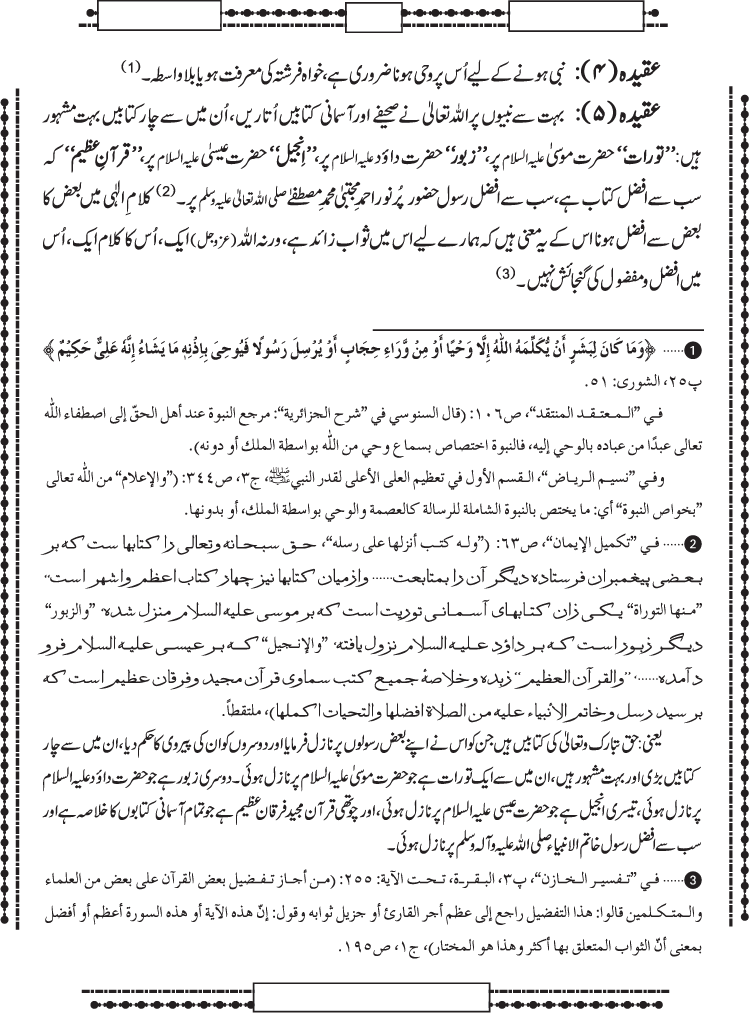 عقیدہ (۴): نبی ہونے کے لیے اُس پر وحی ہونا ضروری ہے، خواہ فرشتہ کی معرفت ہو یا بلا واسطہ۔ (1)
عقیدہ (۵): بہت سے نبیوں پر اللہ تعالیٰ نے صحیفے اور آسمانی کتابیں اُتاریں، اُن میں سے چار کتابیں بہت مشہور
ہیں: ”تورات“ حضرت موسیٰ علیہ السلام پر، ”زبور“ حضرت داؤد علیہ السلام پر، ”اِنجیل“ حضرت عیسیٰ علیہ السلام پر، ”قرآنِ عظیم“ کہ
سب سے افضل کتاب ہے، سب سے افضل رسول حضور پُر نور احمدِ مجتبیٰ محمدِ مصطفےٰ صلی اللہ تعالیٰ علیہ وسلم پر۔ (2) کلامِ الٰہی میں بعض کا
بعض سے افضل ہونا اس کے یہ معنی ہیں کہ ہمارے لیے اس میں ثواب زائد ہے، ورنہ اللہ (عزوجل) ایک، اُس کا کلام ایک، اُس
میں افضل و مفضول کی گنجائش نہیں۔ (3)
1 ...... ﴿وَمَا كَانَ لِبَشَرٍ أَنْ يُّكَلِّمَهُ اللّٰهُ إِلَّا وَحْيًا أَوْ مِنْ وَّرَاءِ حِجَابٍ أَوْ يُرْسِلَ رَسُولًا فَيُوحِيَ بِإِذْنِهٖ مَا يَشَاءُ إِنَّهٗ عَلِيٌّ حَكِيْمٌ﴾
پ۲۵، الشوری: ۵۱.
في ”المعتقد المنتقد“، ص۱۰۶: (قال السنوسي في ”شرح الجزائرية“: مرجع النبوة عند أهل الحقّ إلى اصطفاء اللّٰه
تعالى عبدًا من عباده بالوحي إليه، فالنبوة اختصاص بسماع وحي من اللّٰه بواسطة الملك أو دونه).
وفي ”نسيم الرياض“، القسم الأول في تعظيم العلى الأعلى لقدر النبي ﷺ، ج۳، ص۳۴۴: (”والإعلام“ من اللّٰه تعالى
”بخواص النبوة“ أي: ما يختص بالنبوة الشاملة للرسالة كالعصمة والوحي بواسطة الملك، أو بدونها.
2 ...... في ”تكميل الإيمان“، ص۶۳: (”وله كتب أنزلها على رسله“، حق سبحانه وتعالى را كتابها ست كه بر
بعضى پيغمبران فرستاده ديگر آن را بمتابعت...... وازميان كتابها نيز چهار كتاب اعظم واشهر است“
”منها التوراة“ يكى زان كتابهاى آسمانى توريت است كه بر موسى عليه السلام منزل شده، ”والزبور“
ديگر زبور است كه بر داؤد عليه السلام نزول يافته، ”والإنجيل“ كه بر عيسى عليه السلام فرو
د آمده......، ”والقرآن العظيم“ زبده وخلاصۀ جميع كتب سماوى قرآن مجيد وفرقان عظيم است كه
بر سيد رسل وخاتم الانبياء عليه من الصلاة افضلها والتحيات اكملها)، ملتقطاً.
یعنی: حق تبارک وتعالیٰ کی کتابیں ہیں جن کو اس نے اپنے بعض رسولوں پر نازل فرمایا اور دوسروں کو ان کی پیروی کا حکم دیا، ان میں سے چار
کتابیں بڑی اور بہت مشہور ہیں، ان میں سے ایک تورات ہے جو حضرت موسیٰ علیہ السلام پر نازل ہوئی۔ دوسری زبور ہے جو حضرت داؤد علیہ السلام
پر نازل ہوئی، تیسری انجیل ہے جو حضرت عیسی علیہ السلام پر نازل ہوئی، اور چوتھی قرآن مجید فرقان عظیم ہے جو تمام آسمانی کتابوں کا خلاصہ ہے اور
سب سے افضل رسول خاتم الانبیاء صلی اللہ علیہ وآلہ وسلم پر نازل ہوئی۔
3 ...... في ”تفسير الخازن“، پ۳، البقرة، تحت الآية: ۲۵۵: (من أجاز تفضيل بعض القرآن على بعض من العلماء
والمتكلمين قالوا: هذا التفضيل راجع إلى عظم أجر القارئ أو جزيل ثوابه وقول: إنّ هذه الآية أو هذه السورة أعظم أو أفضل
بمعنى أنّ الثواب المتعلق بها أكثر وهذا هو المختار)، ج۱، ص۱۹۵.